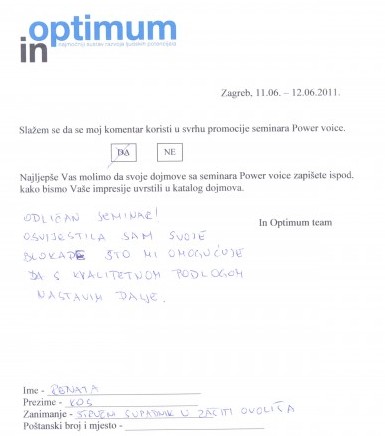 in optimum
najmoćniji sustav razvoja ljudskih potencijala
Zagreb, 11.06. – 12.06.2011.
Slažem se da se moj komentar koristi u svrhu promocije seminara Power voice.
DA NE
Najljepše Vas molimo da svoje dojmove sa seminara Power voice zapišete ispod.
kako bismo Vaše impresije uvrstili u katalog dojmova.
In Optimum team
ODLIČAN SEMINAR!
OSVIJESTILA SAM SVOJE
BLOKADE ŠTO MI OMOGUĆUJE
DA S KVALITETNOM PODLOGOM
NASTAVIM DALJE.
Ime - RENATA
Prezime - KOS
Zanimanje - STRUČNI SURADNIK U ZAŠTITI OKOLIŠA
Poštanski broj i mjesto -